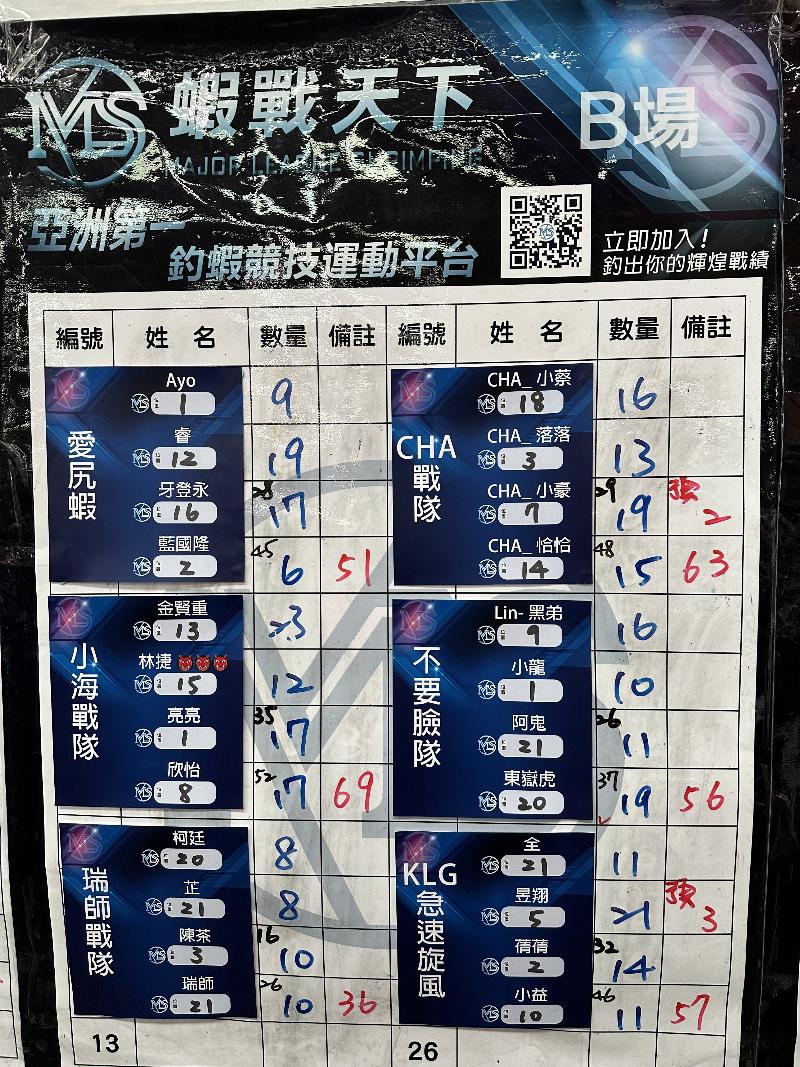 MS 蝦戰天下
MAJOR LEAGUE SHRIMPING
B場
亞洲第一
釣蝦競技運動平台
立即加入!
釣出你的輝煌戰績
編號 姓名 數量 備註 編號 姓名 數量 備註
愛尻蝦
Ayo
1 9
睿
12 19
牙登永
16 28 17
藍國隆
2 45 6 51
CHA戰隊
CHA_小蔡
18 16
CHA_落落
3 13
CHA_小豪
7 29 19 預2
CHA_恰恰
14 48 15 63
小海戰隊
金賢重
13 23
林捷
15 12
亮亮
1 35 17
欣怡
8 52 17 69
不要臉隊
Lin-黑弟
9 16
小龍
1 10
阿鬼
21 26 11
東嶽虎
20 37 19 56
瑞師戰隊
柯廷
20 8
芷
21 8
陳茶
3 16 10
瑞師
21 26 10 36
KLG急速旋風
全
21 11
昱翔
5 21 預3
蒨蒨
2 32 14
小益
10 46 11 57
13 26